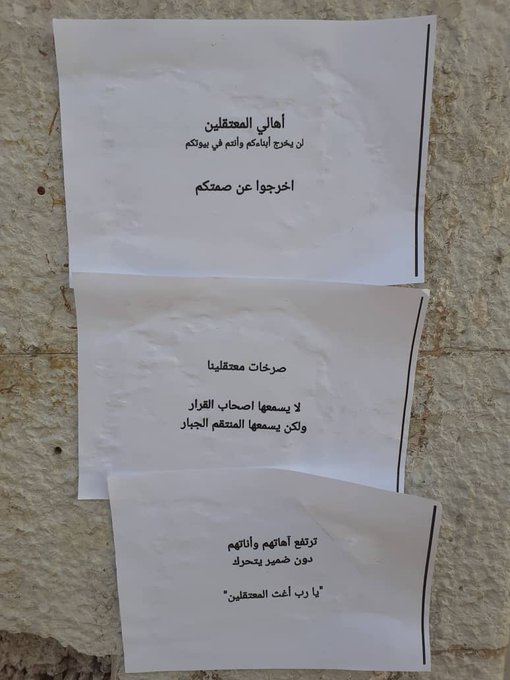 أهالي المعتقلين
لن يخرج أبناءكم وأنتم في بيوتكم
اخرجوا عن صمتكم
صرخات معتقلينا
لا يسمعها اصحاب القرار
ولكن يسمعها المنتقم الجبار
ترتفع آهاتهم وأناتهم
دون ضمير يتحرك
"يا رب أغث المعتقلين"